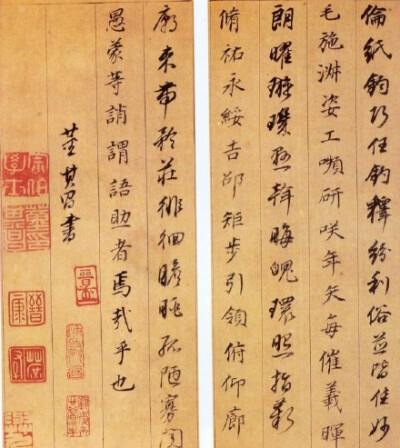 倫紙鈞巧任釣釋紛利俗並皆佳妙
毛施淑姿工嚬研咲年矢每催羲暉
朗曜璇璣懸斡晦魄環照指薪
脩祜永綏吉邵矩步引領俯仰廊
廟束帶矜莊徘徊瞻眺孤陋寡聞
愚蒙等誚謂語助者焉哉乎也
董其昌書
宗伯學士